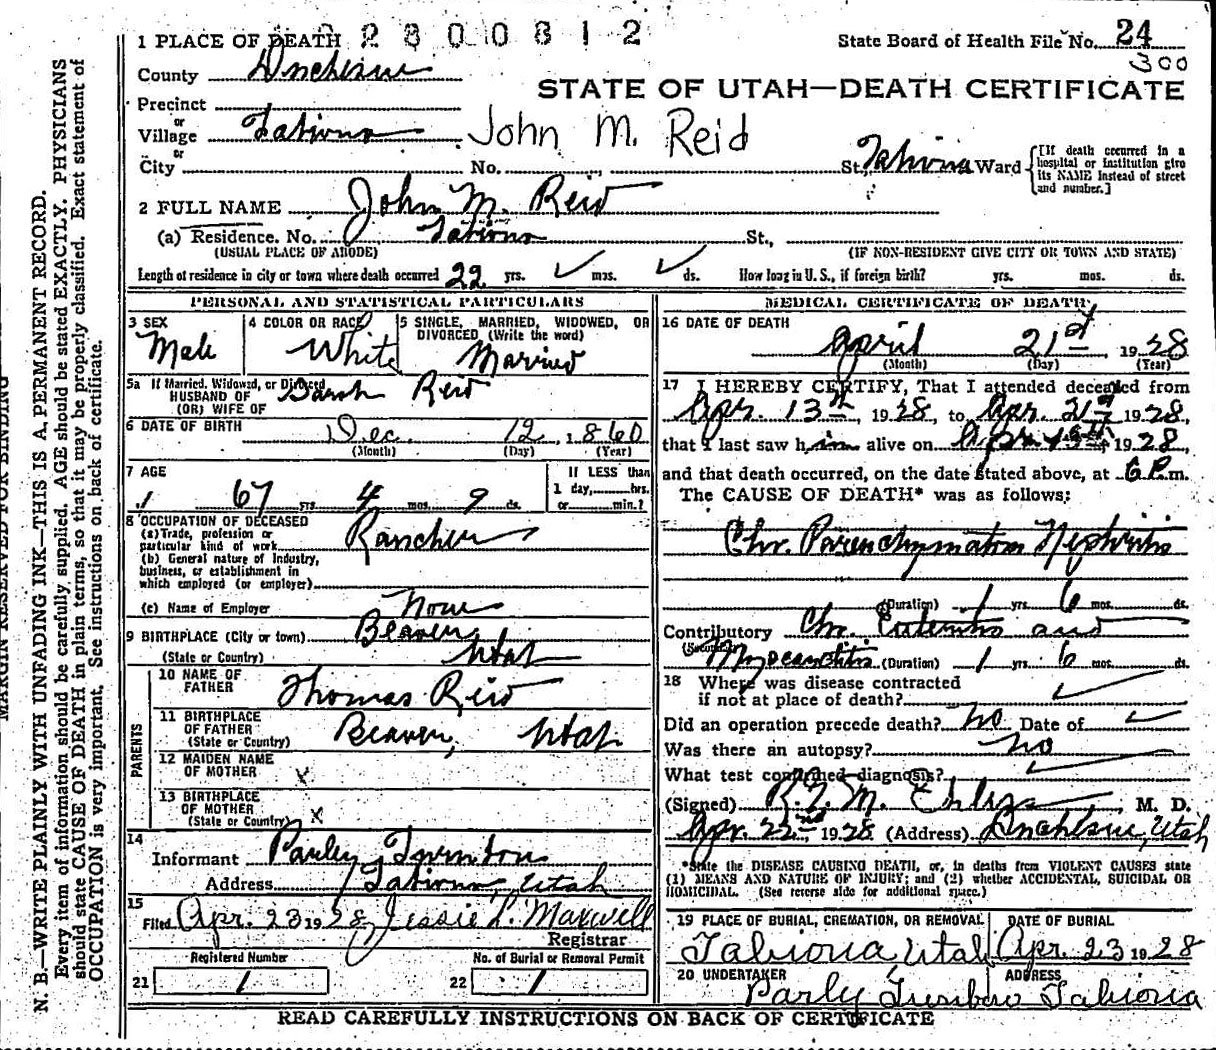 1 PLACE OF DEATH 2800812
State Board of Health File No. 24
300
County Duchesne
STATE OF UTAH—DEATH CERTIFICATE
Precinct
or
Village Tabiona John M. Reid
or
City No. St., Tabiona Ward
[If death occurred in a hospital or institution give its NAME instead of street and number.]
2 FULL NAME John M. Reid
(a) Residence. No. Tabiona St.,
(USUAL PLACE OF ABODE) (IF NON-RESIDENT GIVE CITY OR TOWN AND STATE)
Length of residence in city or town where death occurred 22 yrs. ✓ mos. ✓ ds. How long in U. S., if foreign birth? yrs. mos. ds.
PERSONAL AND STATISTICAL PARTICULARS
3 SEX Male
4 COLOR OR RACE White
5 SINGLE, MARRIED, WIDOWED, OR DIVORCED (Write the word) Married
5a If Married, Widowed, or Divorced
HUSBAND OF Sarah Reid
(OR) WIFE OF
6 DATE OF BIRTH Dec. 12, 1860
(Month) (Day) (Year)
7 AGE 67 yrs 4 mos. 9 ds.
If LESS than
1 day, hrs.
or min.?
8 OCCUPATION OF DECEASED
(a) Trade, profession or
particular kind of work Rancher
(b) General nature of Industry,
business, or establishment in
which employed (or employer)
(c) Name of Employer None
9 BIRTHPLACE (City or town) Beaver,
(State or Country) Utah
PARENTS
10 NAME OF FATHER Thomas Reid
11 BIRTHPLACE OF FATHER (State or Country) Beaver, Utah
12 MAIDEN NAME OF MOTHER x
13 BIRTHPLACE OF MOTHER (State or Country) x
14
Informant Parley
Address Tabiona, Utah
15
Filed Apr. 23 1928 Jessie L. Maxwell
Registrar
Registered Number No. of Burial or Removal Permit
21 1 22 1
MEDICAL CERTIFICATE OF DEATH
16 DATE OF DEATH
April 21st, 1928
(Month) (Day) (Year)
17 I HEREBY CERTIFY, That I attended deceased from
Apr. 13th, 1928, to Apr. 21st 1928,
that I last saw him alive on Apr. 1928,
and that death occurred, on the date stated above, at 6 P.m.
The CAUSE OF DEATH* was as follows:
Chr. Parenchymatous Nephritis
(Duration) 1 yrs 6 mos. ds.
Contributory Chr. and
(Secondary) Myocarditis (Duration) 1 yrs 6 mos. ds.
18 Where was disease contracted
if not at place of death? ✓
Did an operation precede death? no Date of ✓
Was there an autopsy? no
What test confirmed diagnosis? ✓
(Signed) R. M. M. D.
Apr. 22nd 1928 (Address) Duchesne, Utah
*State the DISEASE CAUSING DEATH, or, in deaths from VIOLENT CAUSES state
(1) MEANS AND NATURE OF INJURY; and (2) whether ACCIDENTAL, SUICIDAL OR
HOMICIDAL. (See reverse side for additional space.)
19 PLACE OF BURIAL, CREMATION, OR REMOVAL DATE OF BURIAL
Tabiona, Utah Apr 23 1928
20 UNDERTAKER ADDRESS
Parly Tabiona
READ CAREFULLY INSTRUCTIONS ON BACK OF CERTIFICATE
MARGIN RESERVED FOR BINDING
N. B.—WRITE PLAINLY WITH UNFADING INK—THIS IS A PERMANENT RECORD.
Every item of information should be carefully supplied. AGE should be stated EXACTLY. PHYSICIANS
should state CAUSE OF DEATH in plain terms, so that it may be properly classified. Exact statement of
OCCUPATION is very important. See instructions on back of certificate.